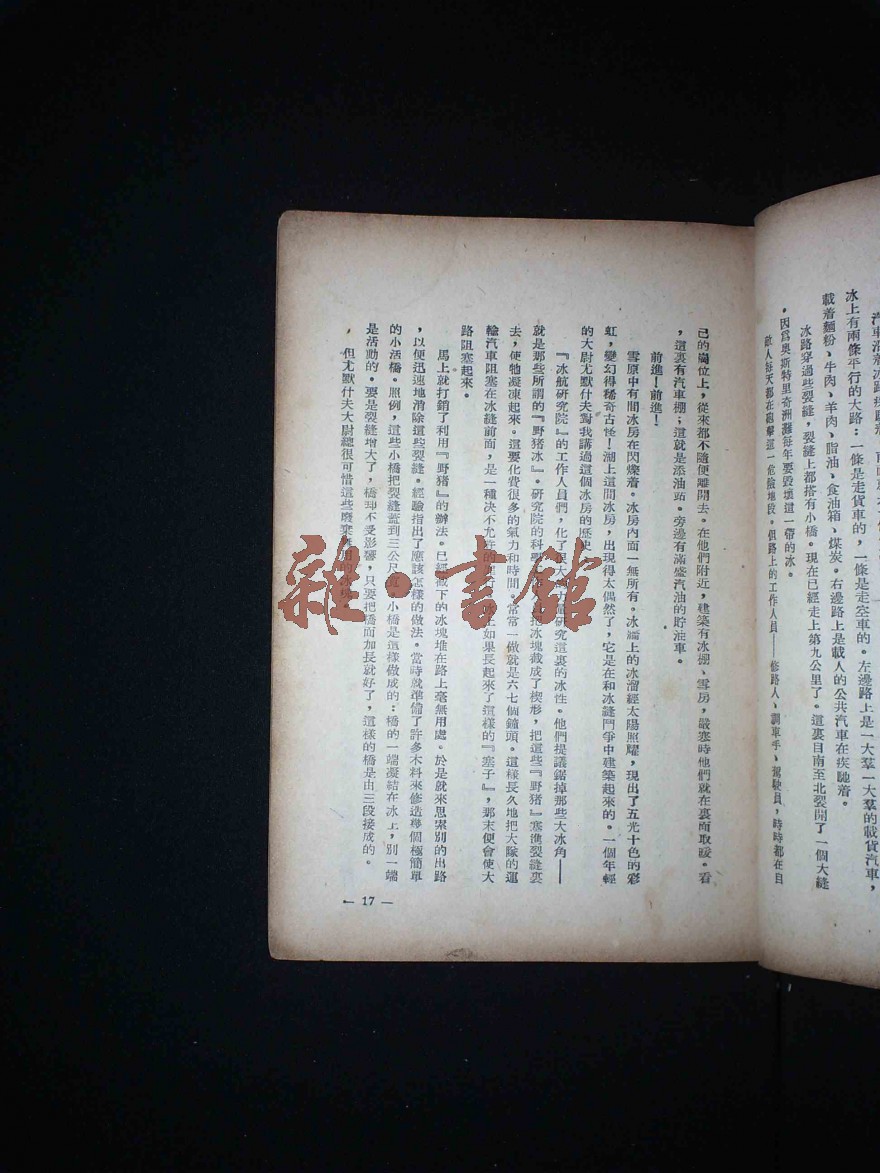 汽車沿着冰路疾馳着
冰上有兩條平行的大路：一條是走貨車的，一條是走空車的。左邊路上是一大羣一大羣的載貨汽車，
載着麵粉、牛肉、羊肉、脂油、食油箱、煤炭。右邊路上是載人的公共汽車在疾馳着。
冰路穿過些裂縫，裂縫上都搭有小橋。現在已經走上第九公里了。這裏自南至北裂開了一個大縫
。因爲奧斯特里奇洲灘每年要毀壞這一帶的冰。
敵人每天都在砲擊這一危險地段。但路上的工作人員——修路人、調車手、駕駛員，時時都在自
己的崗位上，從來都不隨便離開去。在他們附近，建築有冰棚、雪房，嚴寒時他們就在裏面取暖。看
，這裏有汽車棚；這就是添油站。旁邊有滿盛汽油的貯油車。
前進！前進！
雪原中有間冰房在閃爍着。冰房內面一無所有。冰牆上的冰溜經太陽照耀，現出了五光十色的彩
虹，變幻得稀奇古怪！湖上這間冰房，出現得太偶然了，它是在和冰縫鬥爭中建築起來的。一個年輕
的大尉尤默什夫對我講過這個冰房的歷史
『冰航研究院』的工作人員們，化了很 力量研究這裏的冰性。他們提議鋸掉那些大冰角——
就是那些所謂的『野猪冰』。研究院的科學 把冰塊截成了楔形，把這些『野猪』塞進裂縫裏
去，使牠凝凍起來。這要化費很多的氣力和時間。常常一做就是六七個鐘頭。這樣長久地把大隊的運
輸汽車阻塞在冰縫前面，是一種決不允許的 上如果長起來了這樣的『塞子』，那末便會使大
路阻塞起來。
馬上就打銷了利用『野猪』的辦法。已經截下的冰塊堆在路上毫無用處。於是就來思索別的出路
，以便迅速地消除這些裂縫。經驗指出了應該怎樣的做法。當時就準備了許多木料來修造幾個極簡單
的小活橋。照例，這些小橋把裂縫蓋到三公尺 小橋是這樣做成的：橋的一端凝結在冰上，別一端
是活動的。要是裂縫增大了，橋却不受影響，只要把橋面加長就好了，這樣的橋是由三段接成的。
但尤默什夫大尉總很可惜這些廢棄 的冰塊
— 17 —
雜·書館